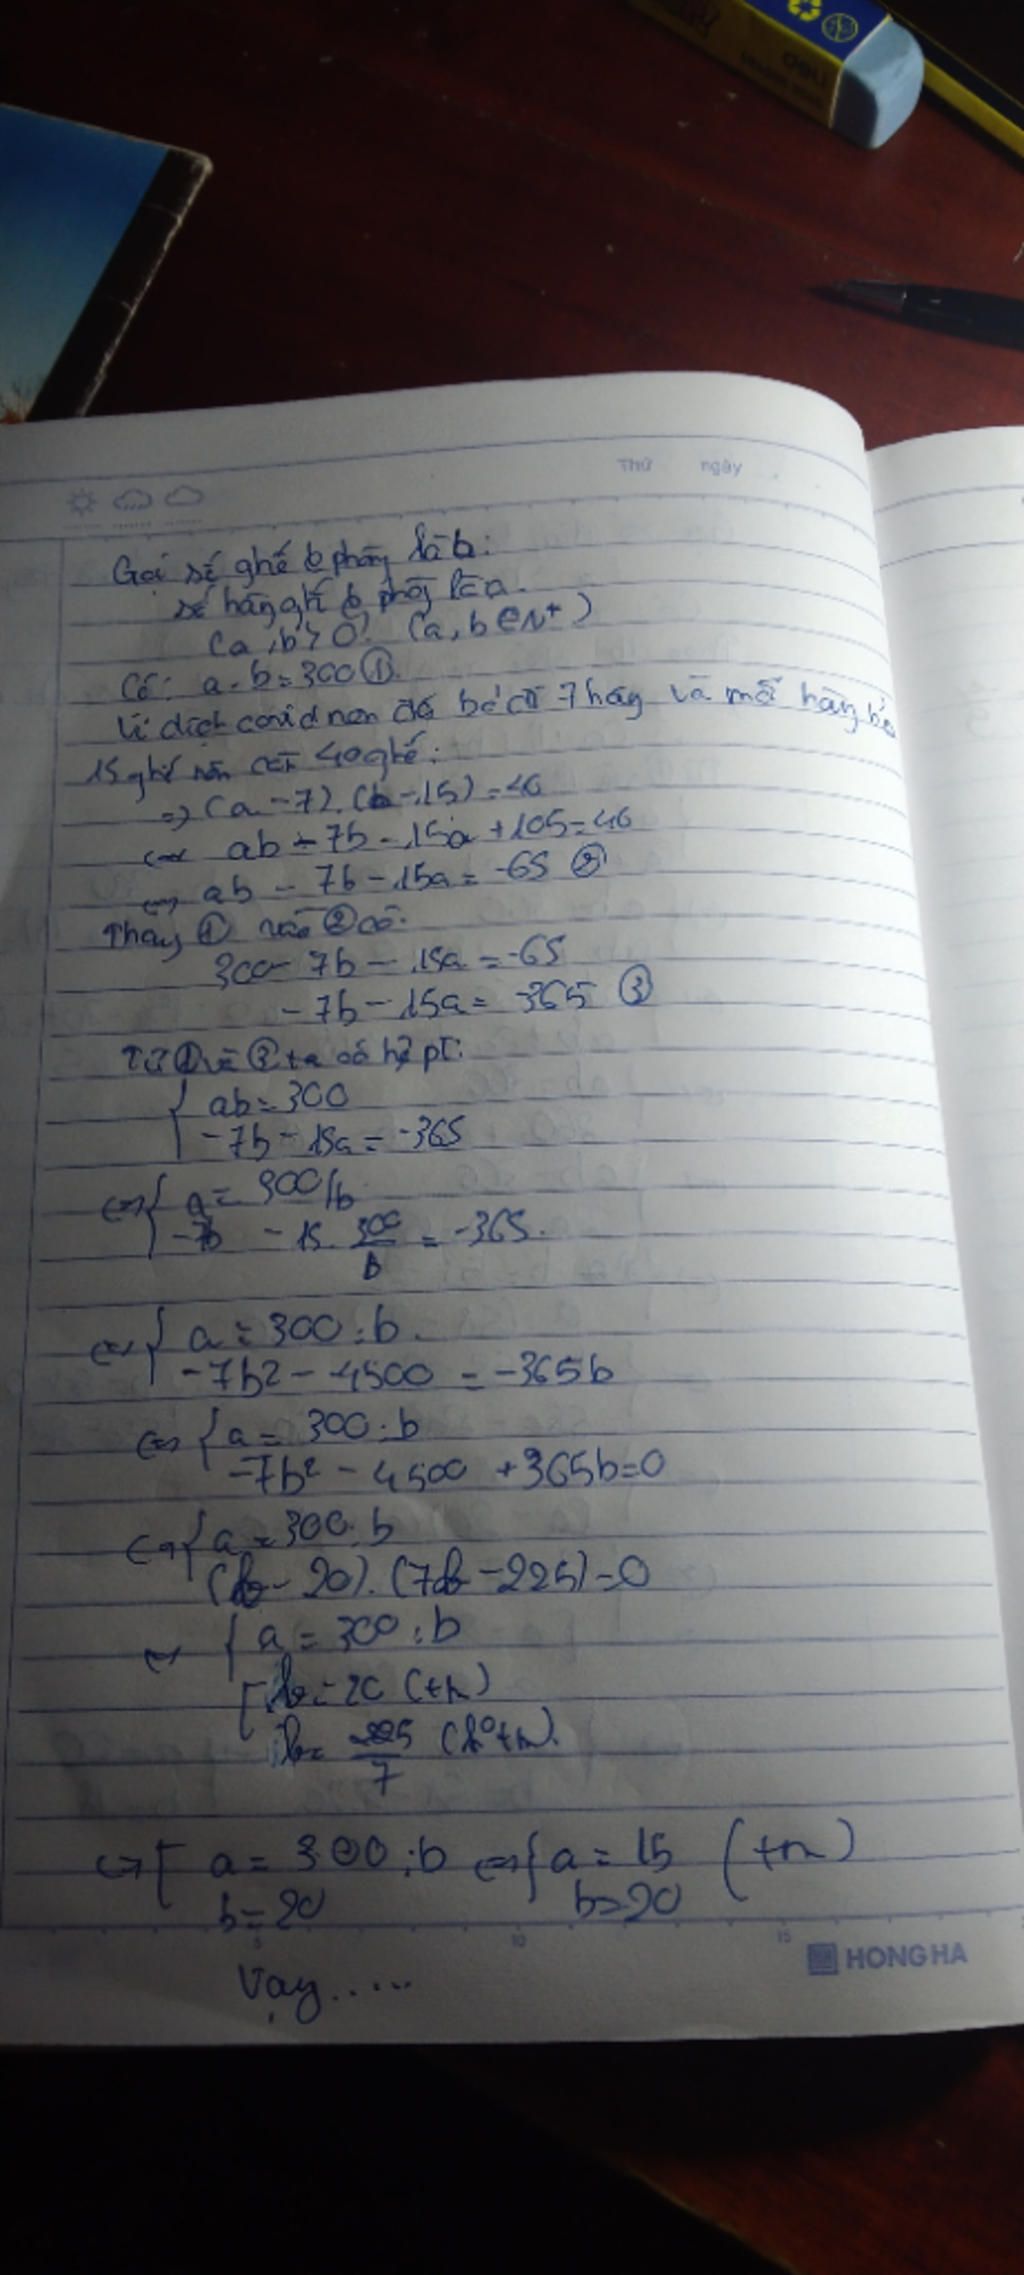 Thứ ngày
Gọi số ghế ở phòng là b:
số hàng ghế ở phòng là a.
(a, b > 0; (a, b ∈ N+)
Có: a.b = 300 ①.
Vì dịch covid nên đã bỏ đi 7 hàng và mỗi hàng bỏ
15 ghế nên còn 40 ghế:
=> (a - 7).(b - 15) = 40
<=> ab - 7b - 15a + 105 = 40
<=> ab - 7b - 15a = -65 ②
Thay ① vào ② có:
300 - 7b - 15a = -65
- 7b - 15a = -365 ③
Từ ① và ③ ta có hệ pt:
{ ab = 300
-7b - 15a = -365
<=> { a = 300/b
-7b - 15. 300/b = -365.
<=> { a = 300 : b.
-7b2 - 4500 = -365b
<=> { a = 300 : b
-7b² - 4500 + 365b = 0
<=> { a = 300 : b
(b - 20).(7b - 225) = 0
<=> { a = 300 : b
[ b = 20 (tm)
b = 225/7 (k° tm).
<=> [ a = 300 : b <=> { a = 15 (tm)
b = 20 b = 20
5 10 15
HONG HA
Vậy.....